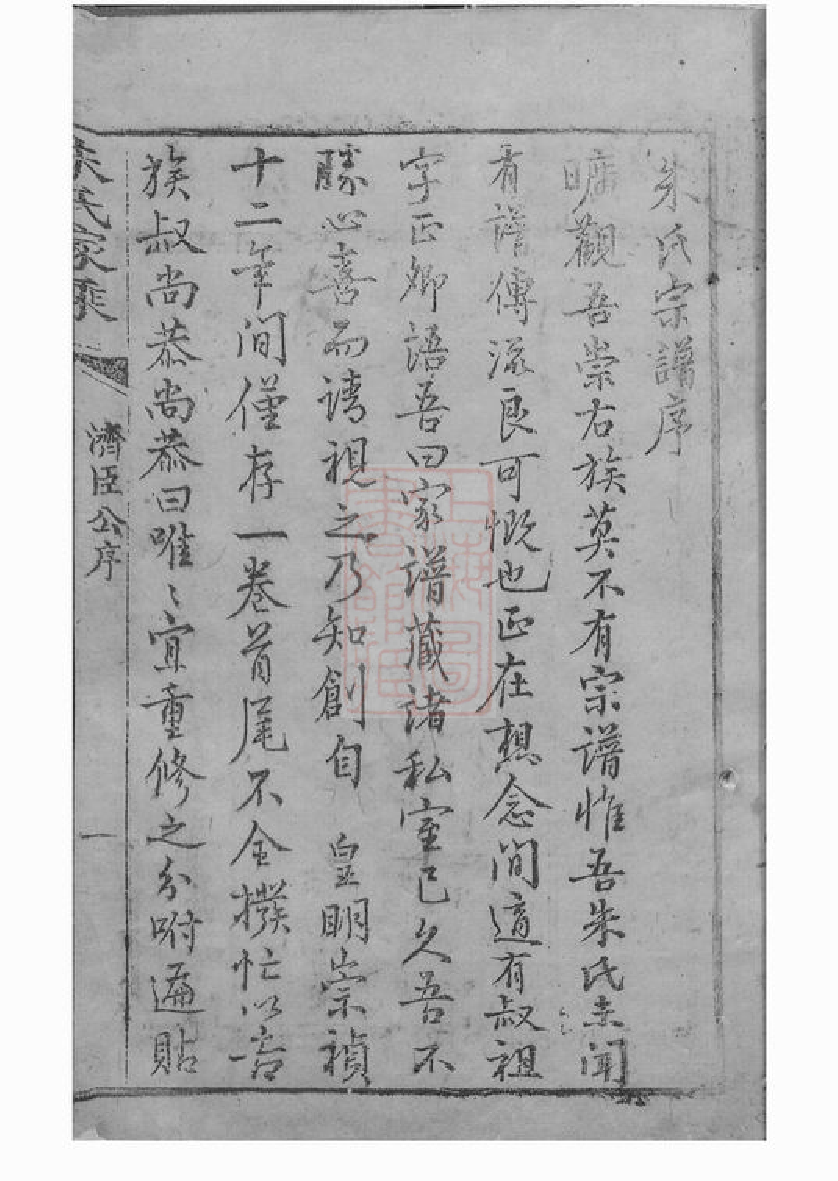 朱氏宗譜序
曠觀吾崇右族莫不有宗譜惟吾朱氏未聞
有譜傳流良可慨也正在想念間適有叔祖
字正卿語吾曰家譜藏諸私室已久吾不
勝心喜而請視之乃知創自 皇明崇禎
十二年間僅存一卷首尾不全撥忙以告
族叔尚恭尚恭曰唯〻宜重修之分咐遍貼
朱氏家乘
濟臣公序
一
上海圖書館藏